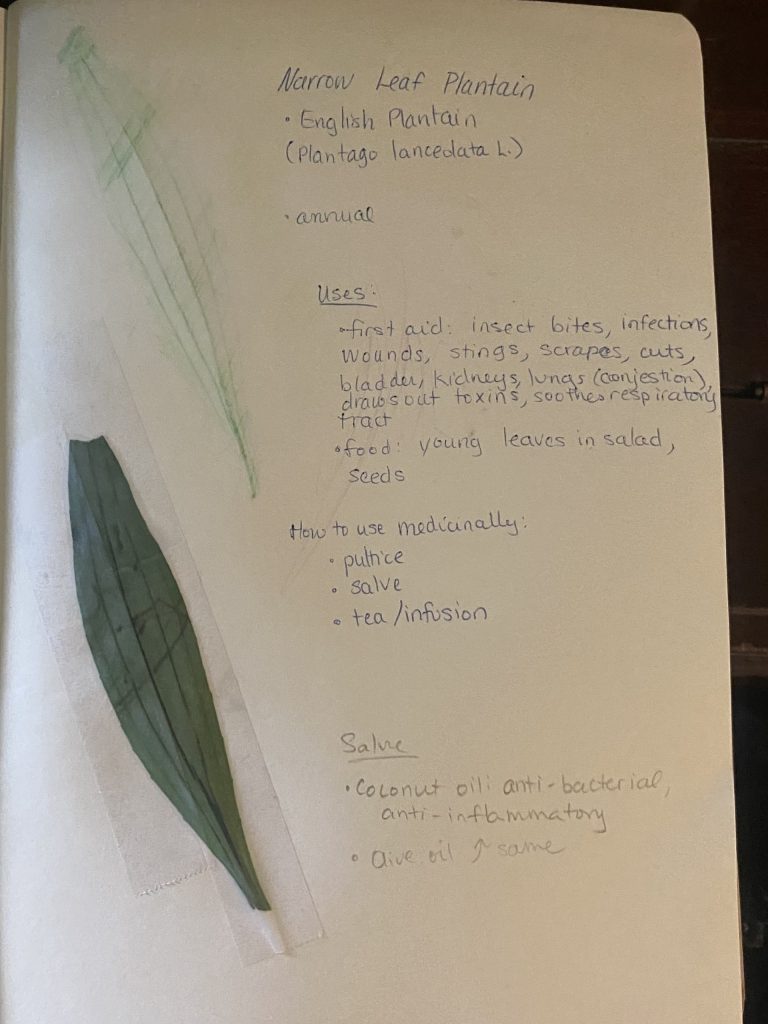 Narrow Leaf Plantain
• English Plantain
(Plantago lancedata L.)
• annual
Uses:
• first aid: insect bites, infections,
wounds, stings, scrapes, cuts,
bladder, kidneys, lungs (conjestion),
draws out toxins, soothes respiratory
tract
• food: young leaves in salad,
seeds
How to use medicinally:
• pultice
• salve
• tea/infusion
Salve
• Coconut oil: anti-bacterial,
anti-inflammatory
• Olive oil ↑ same